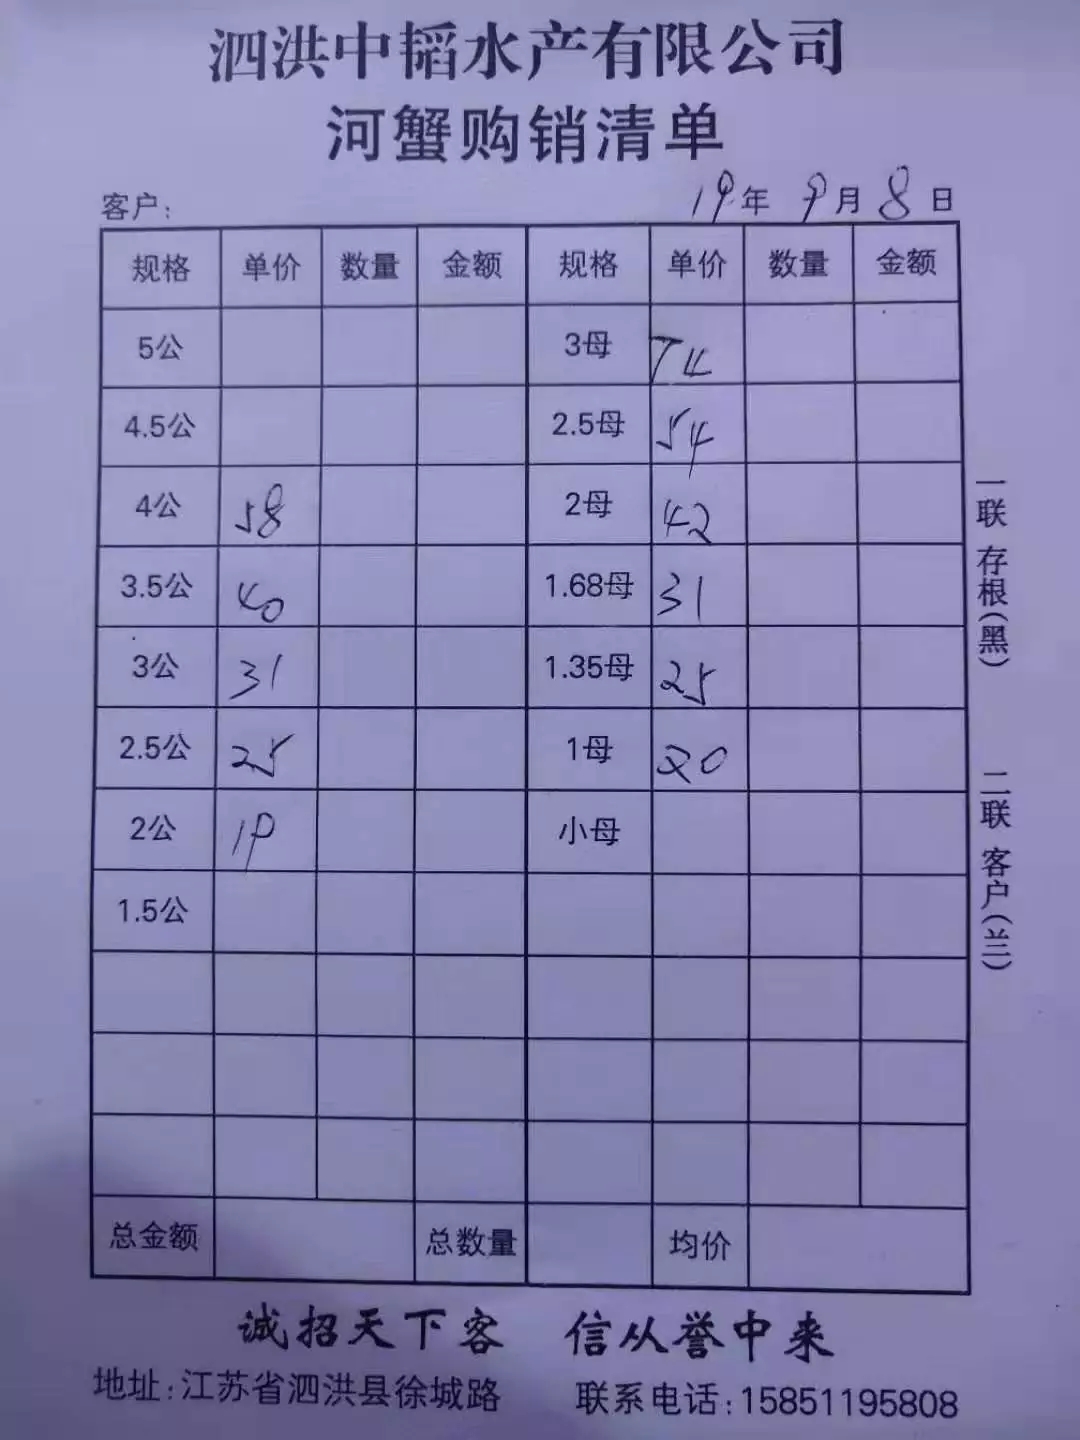 泗洪中韬水产有限公司
河蟹购销清单
客户： 19年 9月 8日
规格 单价 数量 金额 规格 单价 数量 金额
5公 3母 74
4.5公 2.5母 54
4公 58 2母 42
3.5公 40 1.68母 31
3公 31 1.35母 25
2.5公 25 1母 20
2公 19 小母
1.5公
总金额 总数量 均价
一联 存根(黑)
二联 客户(兰)
诚招天下客 信从誉中来
地址：江苏省泗洪县徐城路 联系电话：15851195808